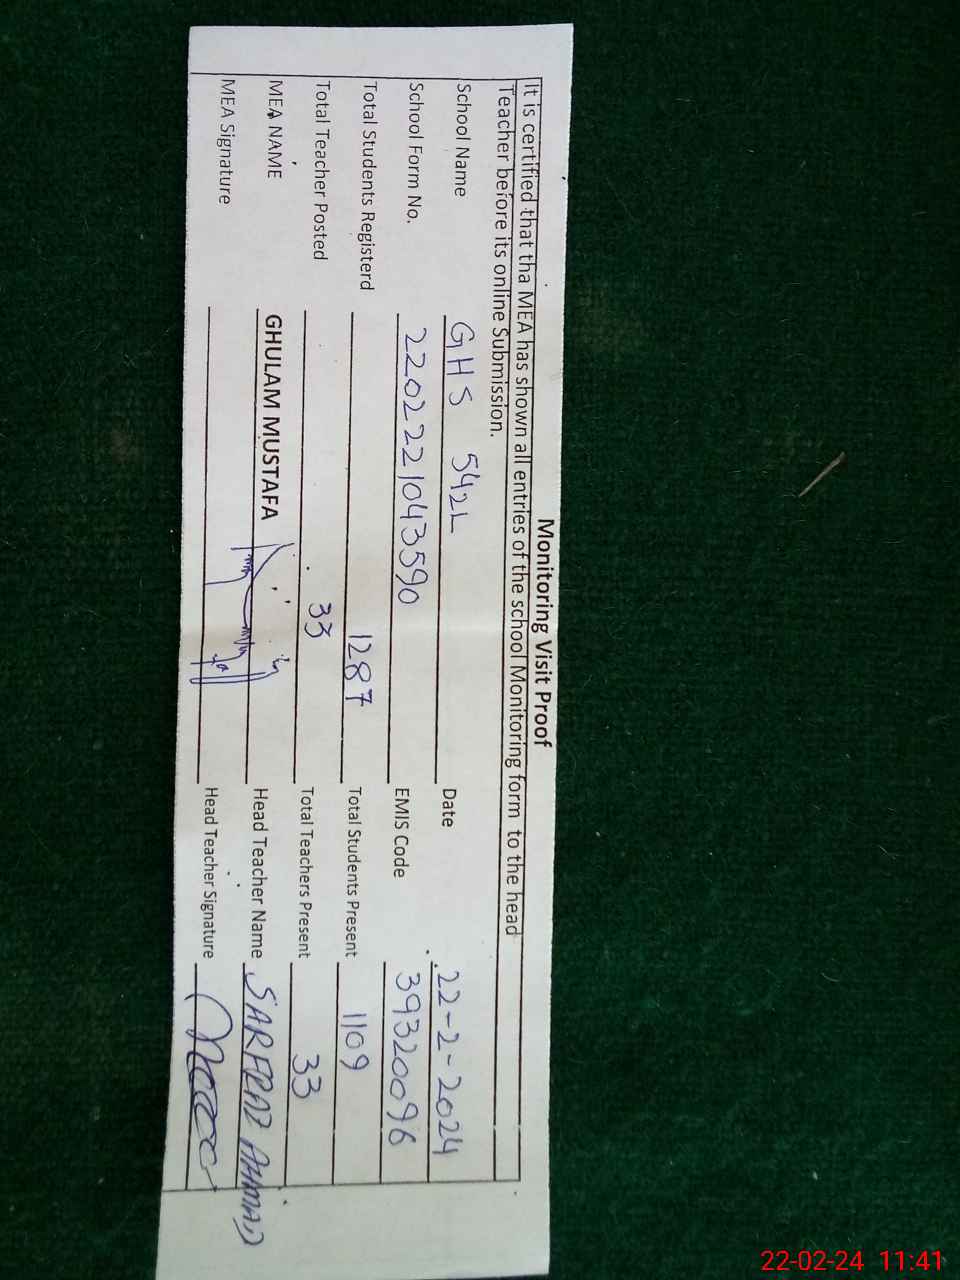 Monitoring Visit Proof
It is certified that tha MEA has shown all entries of the school Monitoring form to the head
Teacher before its online Submission.
School Name GHS 542L Date 22-2-2024
School Form No. 2202221043590 EMIS Code 39320096
Total Students Registerd 1287 Total Students Present 1109
Total Teacher Posted 33 Total Teachers Present 33
MEA NAME GHULAM MUSTAFA Head Teacher Name SARFRAZ AHMAD
MEA Signature Head Teacher Signature
22-02-24 11:41